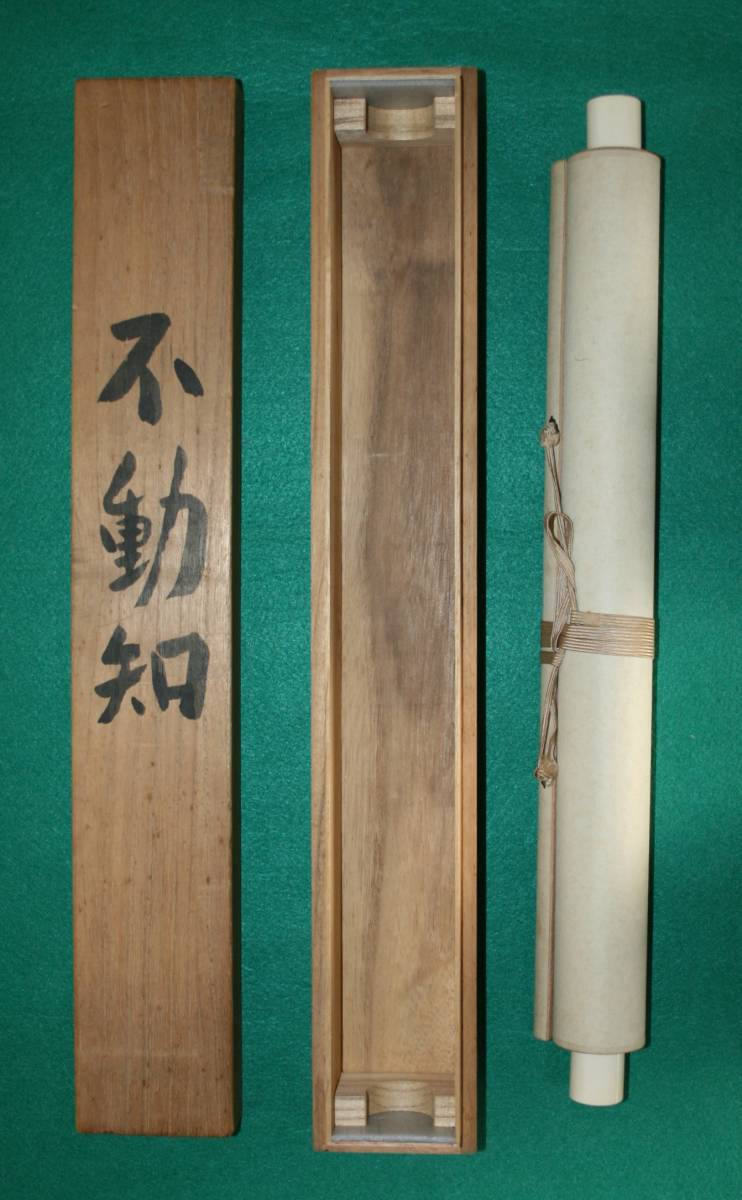 不動知